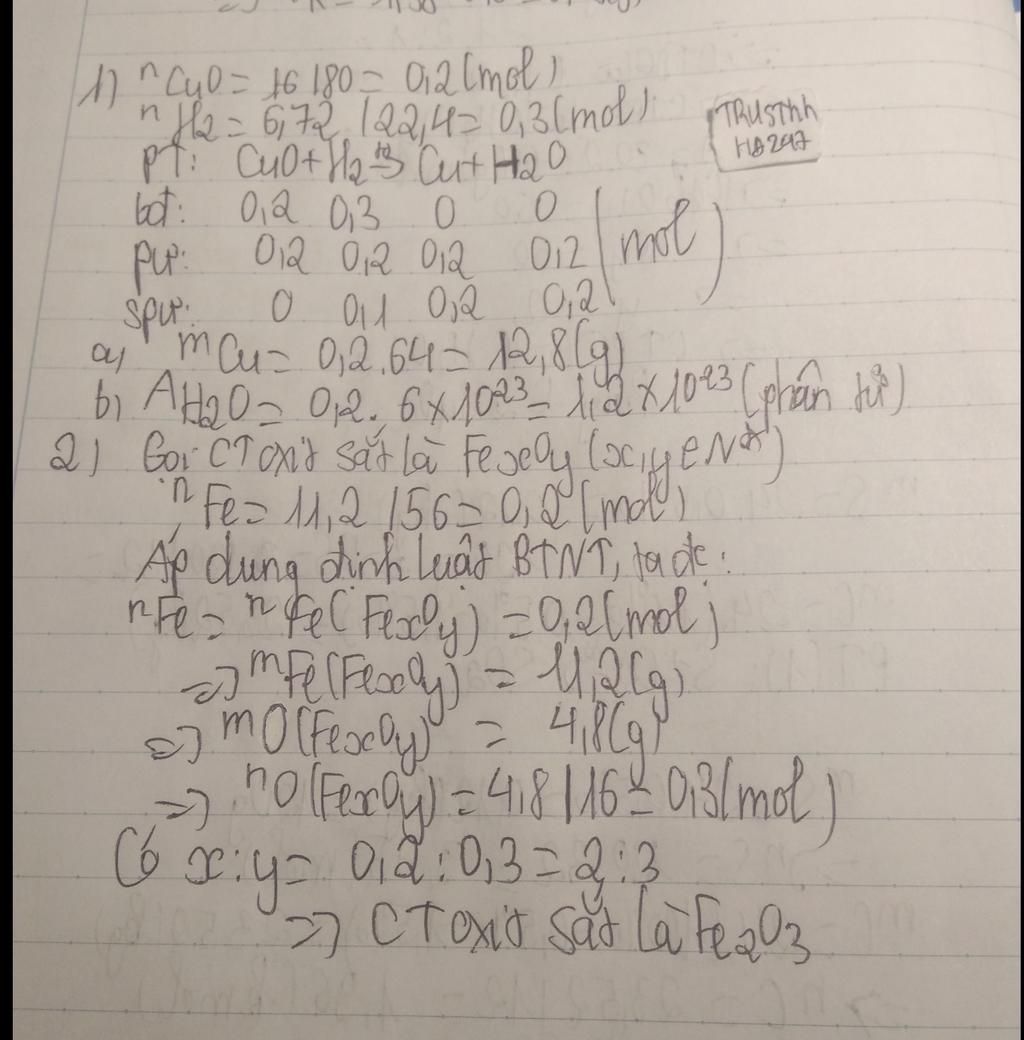 1) nCuO = 16/80 = 0,2 (mol)
nH2 = 6,72 / 22,4 = 0,3 (mol)
TRUSThh
HB247
PT: CuO + H2 to→ Cu + H2O
bđ: 0,2 0,3 0 0
pư: 0,2 0,2 0,2 0,2 (mol)
spư: 0 0,1 0,2 0,2
a) mCu = 0,2.64 = 12,8 (g)
b) AH2O = 0,2. 6×10^23 = 1,2×10^23 (phân tử)
2) Gọi CT oxit sắt là FexOy (x,y ∈ N*)
nFe = 11,2 / 56 = 0,2 (mol)
Áp dụng định luật BTNT, ta đc:
nFe = nFe(FexOy) = 0,2 (mol)
=> mFe(FexOy) = 11,2 (g)
=> mO(FexOy) = 4,8 (g)
=> nO(FexOy) = 4,8 / 16 = 0,3 (mol)
Có x:y = 0,2 : 0,3 = 2:3
=> CT oxit sắt là Fe2O3